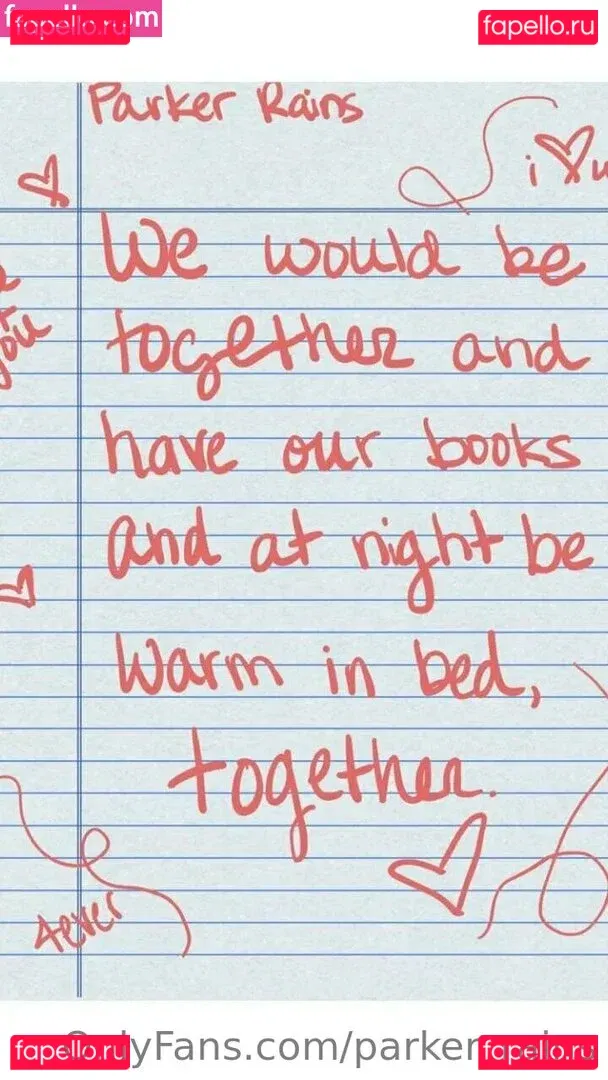 fapello.ru
fapello.ru
Parker Rains
i
We would be
you
together and
have our books
and at night be
warm in bed,
together.
4ever
fapello.ru
fapello.ru